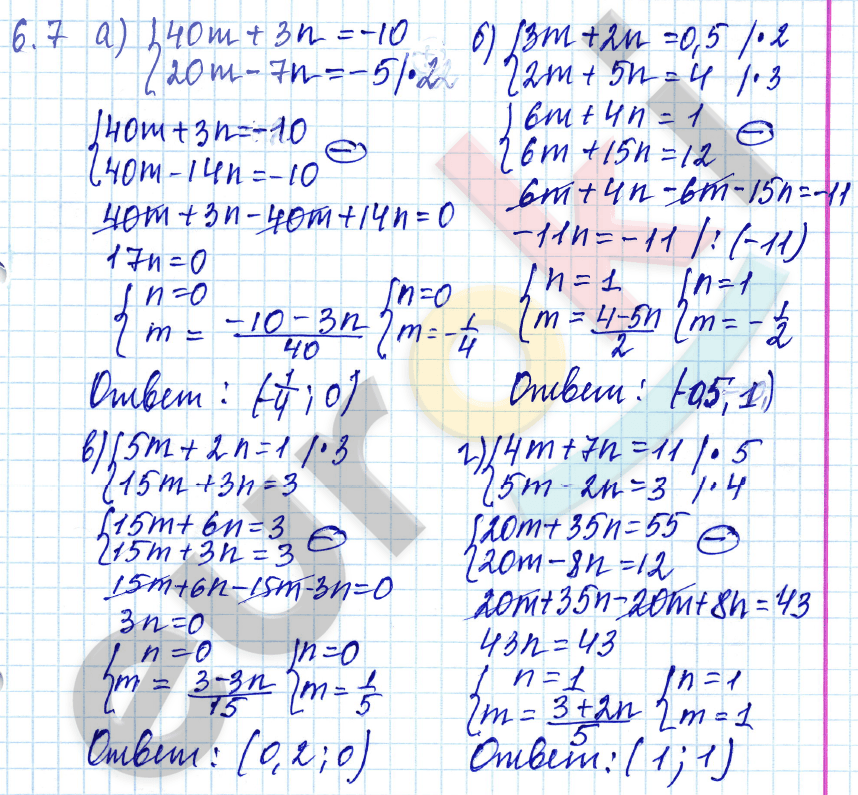 6.7 а) {40m + 3n = -10
{20m - 7n = -5 |·2
{40m + 3n = -10
{40m - 14n = -10 ⊖
40m + 3n - 40m + 14n = 0
17n = 0
{n = 0
{m = (-10 - 3n)/40
{n = 0
{m = -1/4
Ответ: (-1/4; 0)
б) {3m + 2n = 0,5 |·2
{2m + 5n = 4 |·3
{6m + 4n = 1
{6m + 15n = 12 ⊖
6m + 4n - 6m - 15n = -11
-11n = -11 |:(-11)
{n = 1
{m = (4 - 5n)/2
{n = 1
{m = -1/2
Ответ: (-0,5; 1)
в) {5m + 2n = 1 |·3
{15m + 3n = 3
{15m + 6n = 3
{15m + 3n = 3 ⊖
15m + 6n - 15m - 3n = 0
3n = 0
{n = 0
{m = (3 - 3n)/15
{n = 0
{m = 1/5
Ответ: (0,2; 0)
г) {4m + 7n = 11 |·5
{5m - 2n = 3 |·4
{20m + 35n = 55
{20m - 8n = 12 ⊖
20m + 35n - 20m + 8n = 43
43n = 43
{n = 1
{m = (3 + 2n)/5
{n = 1
{m = 1
Ответ: (1; 1)
euroki